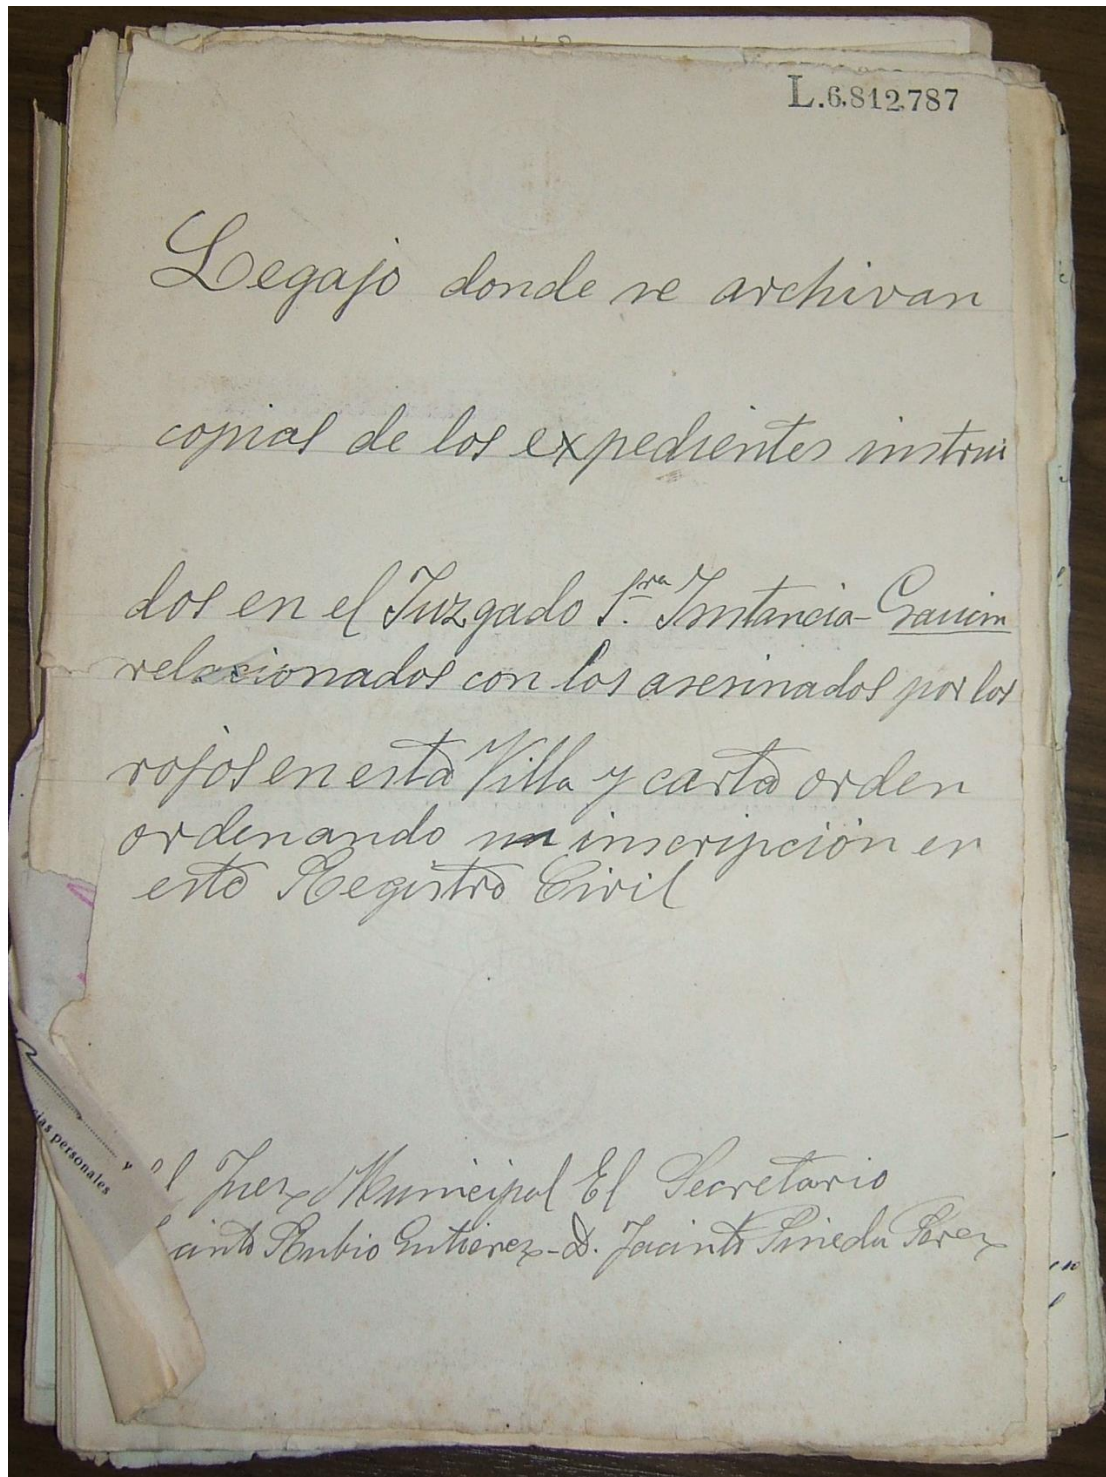 L.6.812.787
Legajo donde se archivan
copias de los expedientes instrui
dos en el Juzgado 1.ra Instancia - Gaucin
relacionados con los asesinados por los
rojos en esta Villa y carta orden
ordenando su inscripción en
este Registro Civil
El Juez Municipal El Secretario
cinto Rubio Gutierrez - D. Jacinto Pineda Perez
ias personales
y